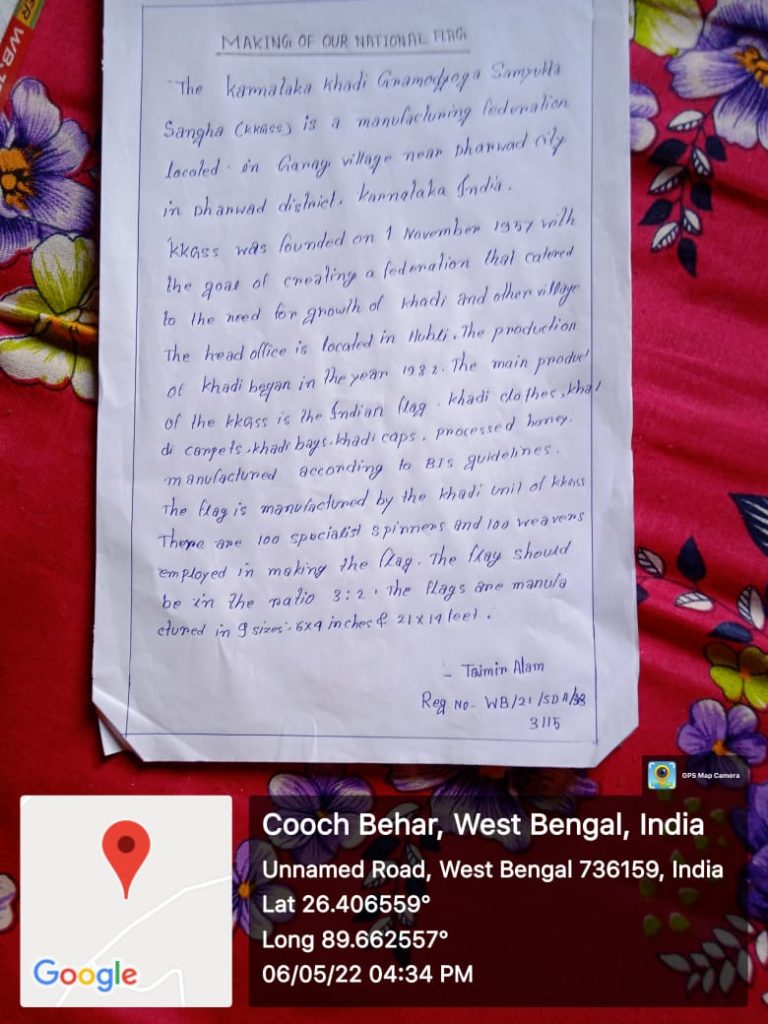 ER WB-
MAKING OF OUR NATIONAL FLAG
The Karnataka Khadi Gramodyoga Samyukta
Sangha (KKGSS) is a manufacturing federation
located in Garag village near Dharwad city
in Dharwad district, Karnataka India.
KKGSS was founded on 1 November 1957 with
the goal of creating a federation that catered
to the need for growth of khadi and other village
The head office is located in Hubli. The production
of khadi began in the year 1982. The main product
of the KKGSS is the Indian flag. khadi clothes, kha
di carpets, khadi bags, khadi caps, processed honey.
manufactured according to BIS guidelines.
The flag is manufactured by the khadi unit of KKGSS
There are 100 specialist spinners and 100 weavers
employed in making the flag. The flag should
be in the ratio 3:2. The flags are manufa
ctured in 9 sizes - 6x4 inches & 21x14 feet.
- Taimin Alam
Reg No- WB/21/SDA/38
3115
GPS Map Camera
Cooch Behar, West Bengal, India
Unnamed Road, West Bengal 736159, India
Lat 26.406559°
Long 89.662557°
06/05/22 04:34 PM
Google